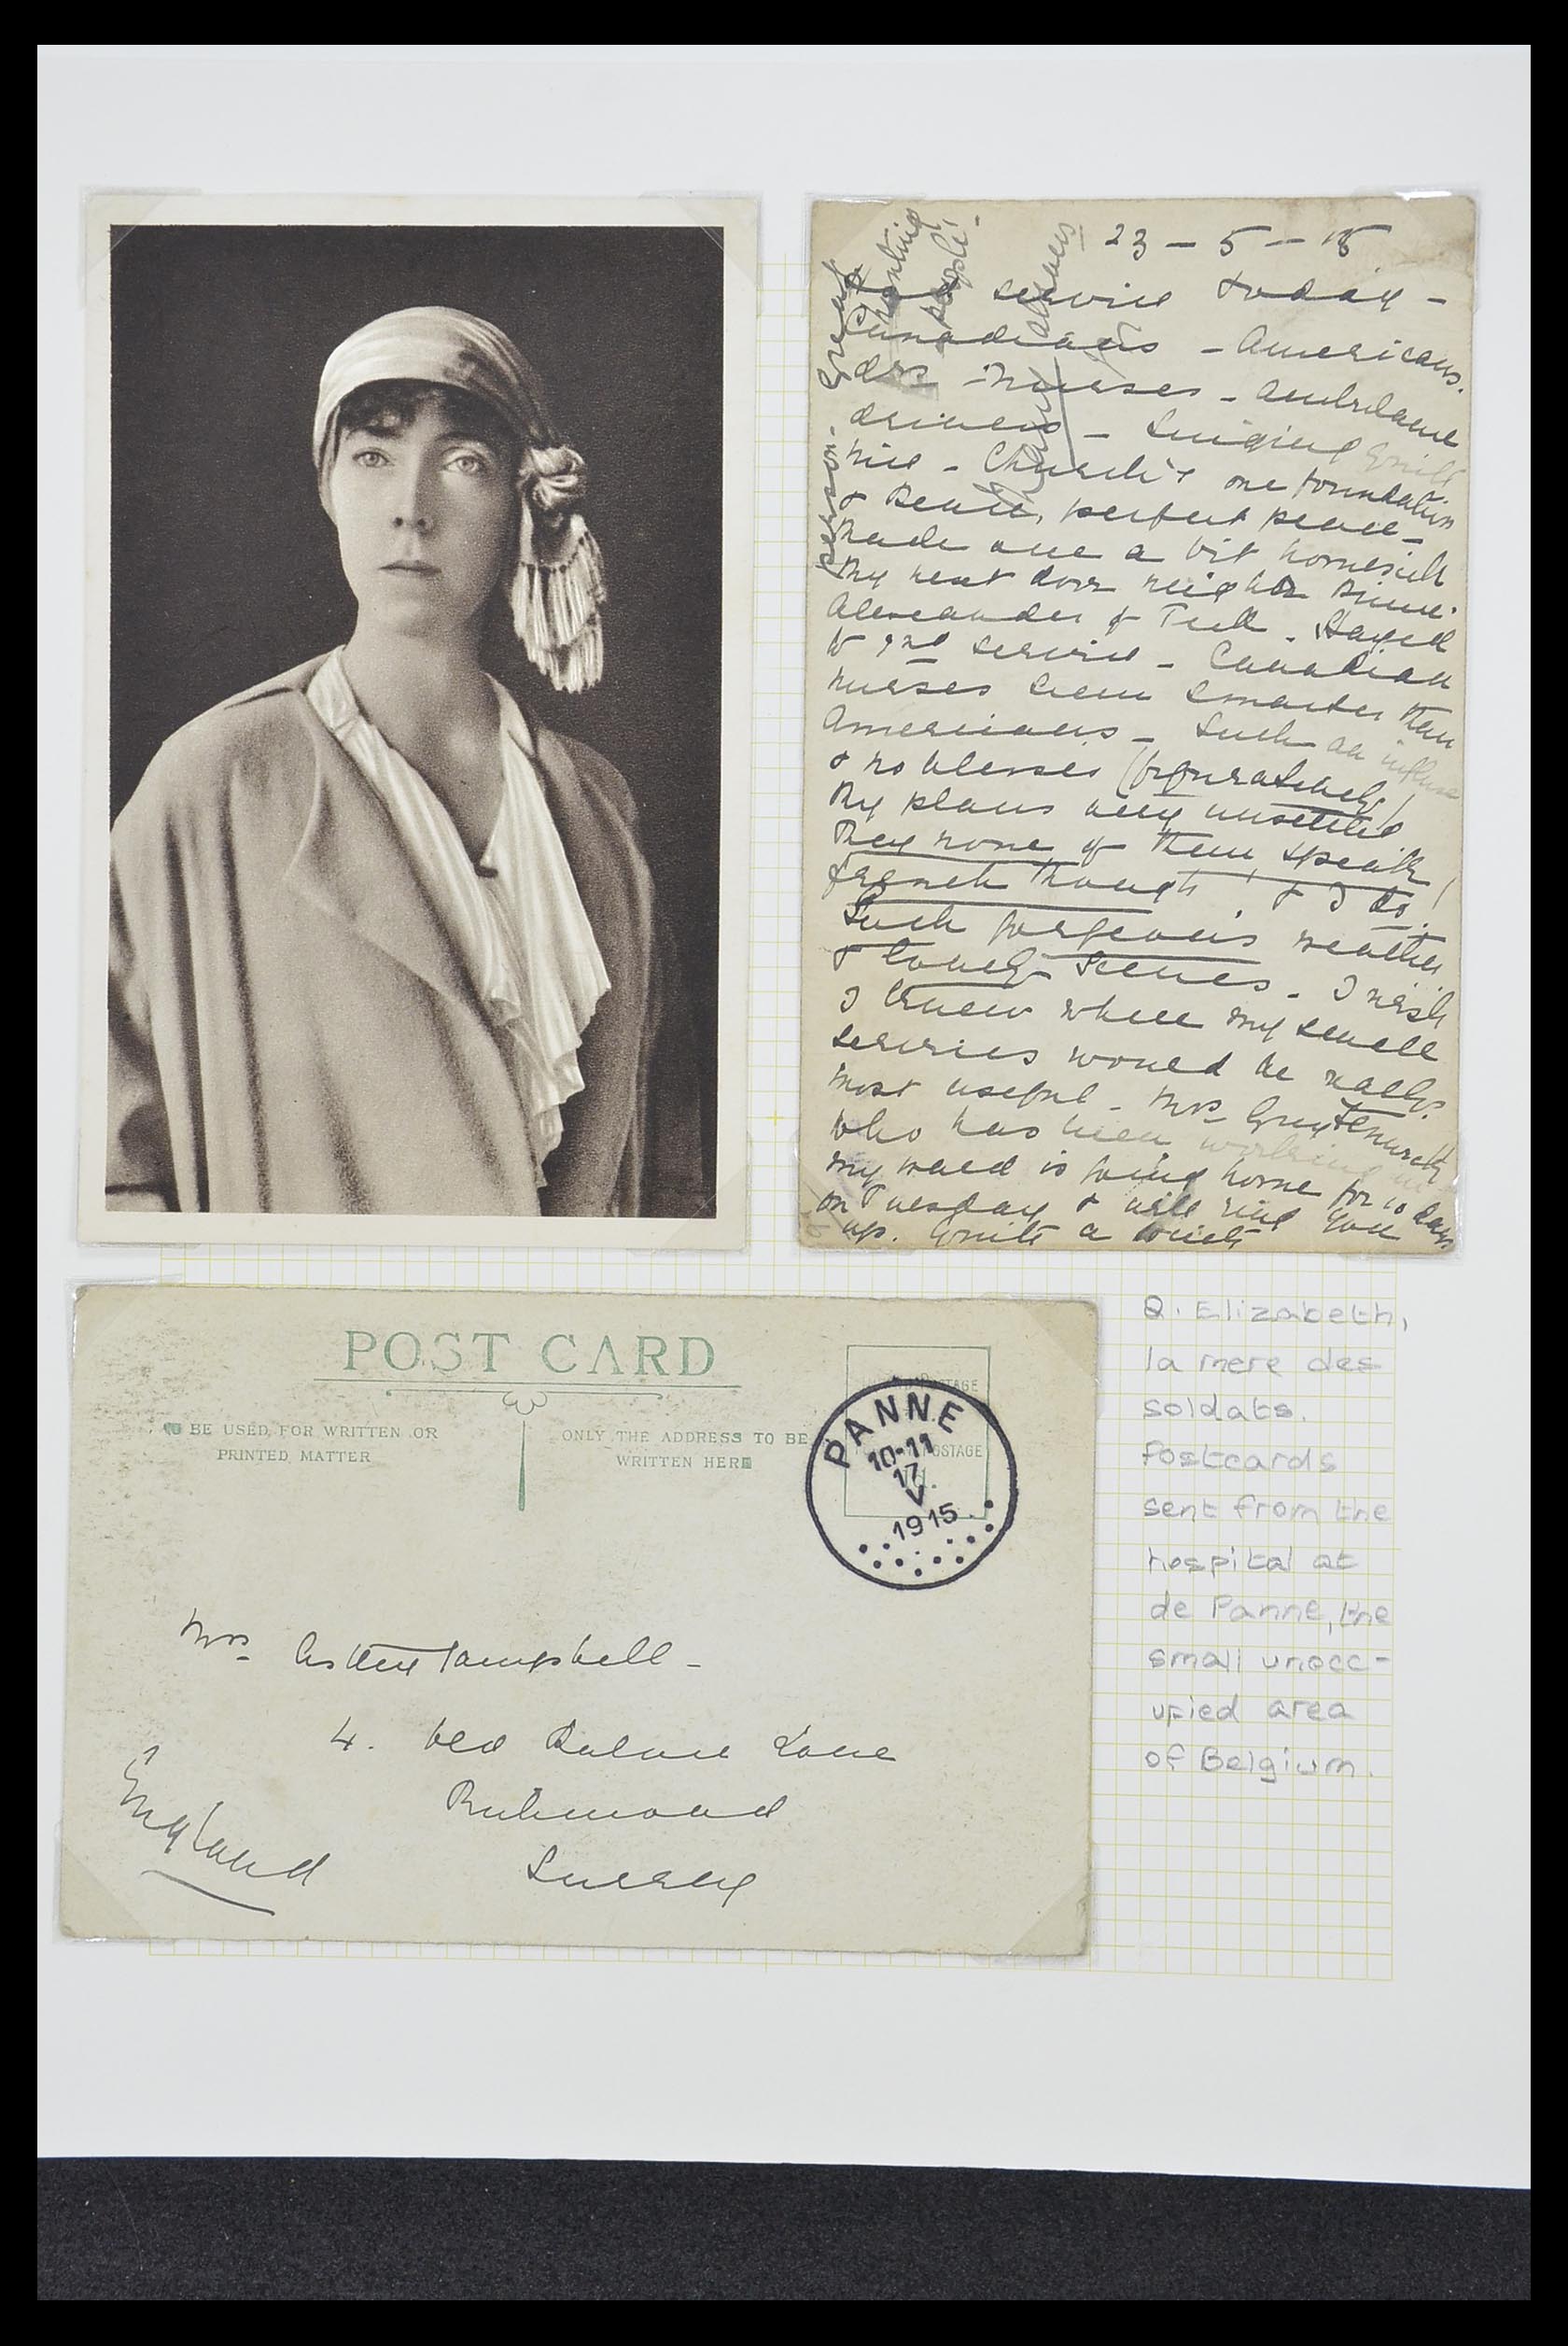 23 - 5 - 15
service today -
Canadians - Americans.
drs - nurses - ambulance
drivers - Singing quite
nice - Church's one foundation
& Peace, perfect peace -
made one a bit homesick
My next door neighbor Prince
Alexander of Teck. Stayed
to 2nd service - Canadian
nurses seem smarter than
Americans - Such an
& no blesses (figuratively)
My plans very unsettled
They none of them speak
french though! & I do!
Such gorgeous weather
& lovely scenes. I wish
I knew where my small
services would be really
most useful - Mrs
who has been working in
my ward is going home for 10 days
on Tuesday & will ring you
up. Quite a
POST CARD
TO BE USED FOR WRITTEN OR
PRINTED MATTER
ONLY THE ADDRESS TO BE
WRITTEN HERE
PANNE
10-11
17
V
1915
Mrs Campbell -
4. Old Palace Lane
Richmond
Surrey
England
Q. Elizabeth,
la mere des
soldats.
Postcards
sent from the
hospital at
de Panne, the
small unocc-
upied area
of Belgium.